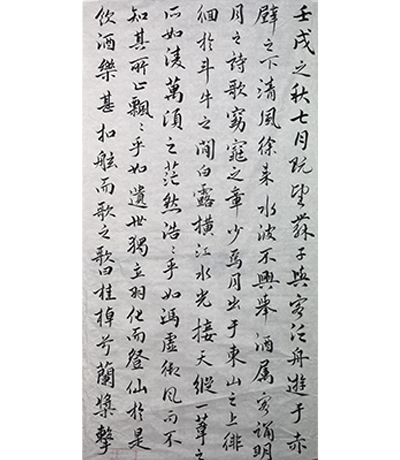 壬戌之秋七月既望蘇子與客泛舟遊于赤
壁之下清風徐來水波不興舉酒属客誦明
月之詩歌窈窕之章少焉月出于東山之上徘
徊於斗牛之間白露橫江水光接天縱一葦之
所如凌萬頃之茫然浩〻乎如馮虛御風而不
知其所止飄〻乎如遺世獨立羽化而登仙於是
飲酒樂甚扣舷而歌之歌曰桂棹兮蘭槳擊